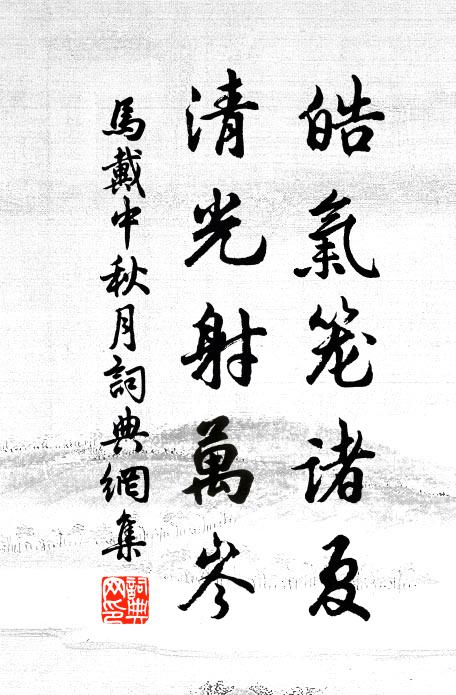 皓氣笼諸夏
清光射萬岑
馬戴中秋月詞典網集
詞典网印